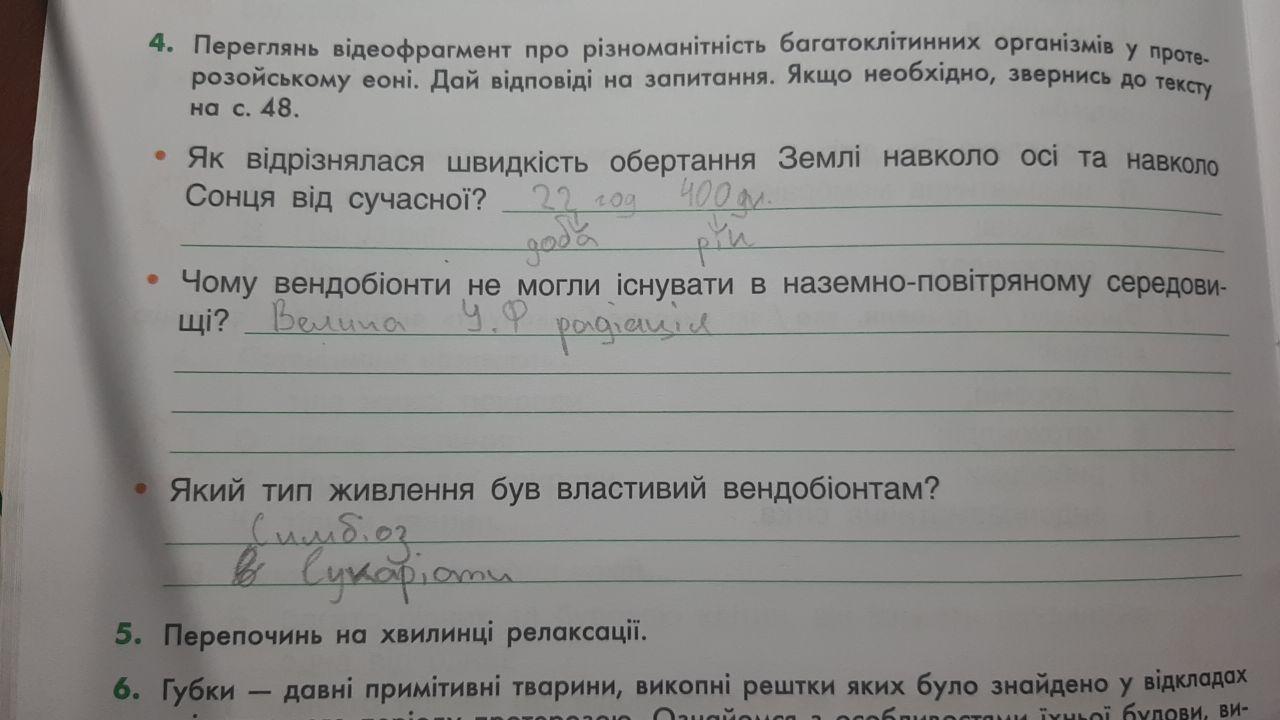 4. Переглянь відеофрагмент про різноманітність багатоклітинних організмів у проте-
розойському еоні. Дай відповіді на запитання. Якщо необхідно, звернись до тексту
на с. 48.
• Як відрізнялася швидкість обертання Землі навколо осі та навколо
Сонця від сучасної? 22 год 400 дн.
доба рік
• Чому вендобіонти не могли існувати в наземно-повітряному середови-
щі? Велика У.Ф радіація
• Який тип живлення був властивий вендобіонтам?
Симбіоз
5. Перепочинь на хвилинці релаксації.
6. Губки — давні примітивні тварини, викопні рештки яких було знайдено у відкладах
періоду протерозою. Ознайомся з особливостями їхньої будови, ви-